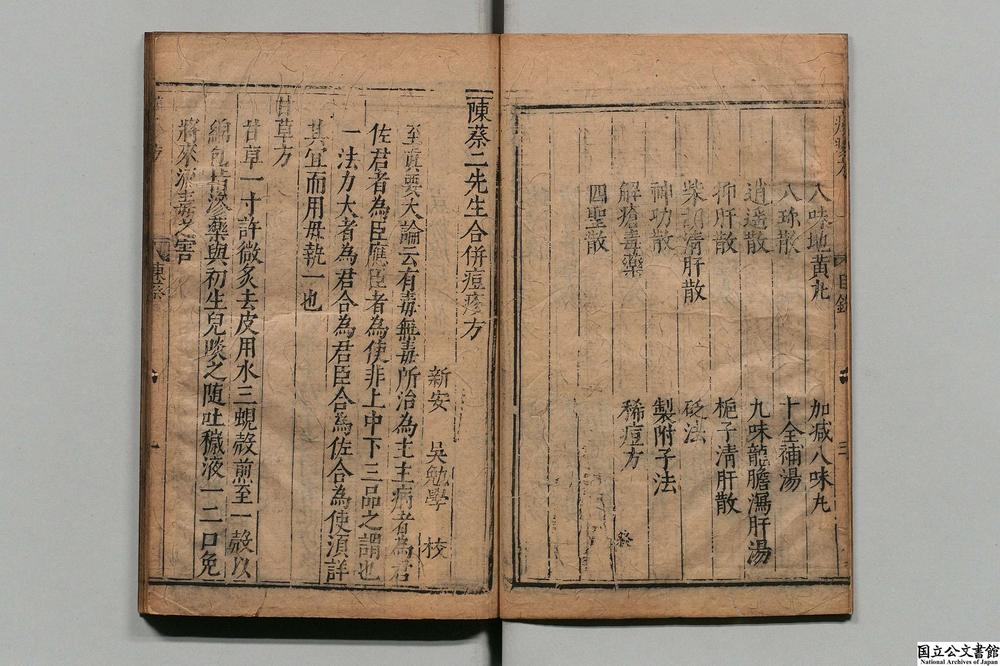 八味地黄丸
加减八味丸
八珎散
十全補湯
逍遥散
九味龍膽瀉肝湯
抑肝散
梔子清肝散
柴胡清肝散
砭法
神功散
製附子法
解瘡毒藥
稀痘方
四聖散
終
目録
三
陳蔡二先生合併痘疹方
新安 吳勉學 校
至眞要大論云有毒無毒所治為主主病者為君
佐君者為臣應臣者為使非上中下三品之謂也
一法力大者為君合為君臣合為佐合為使湏詳
其宜而用毋執一也
甘草方
甘草一寸許微炙去皮用水三蜆殻煎至一殻以
綿包蘸藥與初生兒啖之随吐穢液一二口免
將來痘毒之害
陳蔡
一
国立公文書館
National Archives of Japan